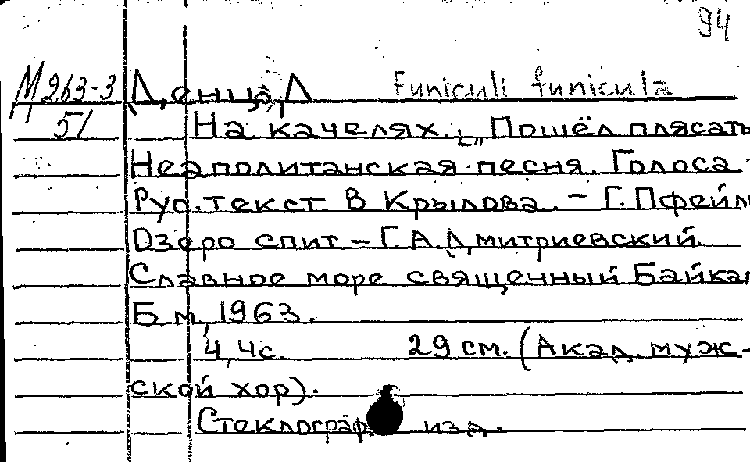 94
М 263-3 Денца, Л Funiculi funicula
51 На качелях. „Пошёл плясать
Неаполитанская песня. Голоса
Рус. текст В Крылова. – Г. Пфейл
Озеро спит – Г. А. Дмитриевский
Славное море священный Байкал
Б м, 1963.
4, 4с. 29 см. (Акад. муж-
ской хор).
Стеклограф изд.